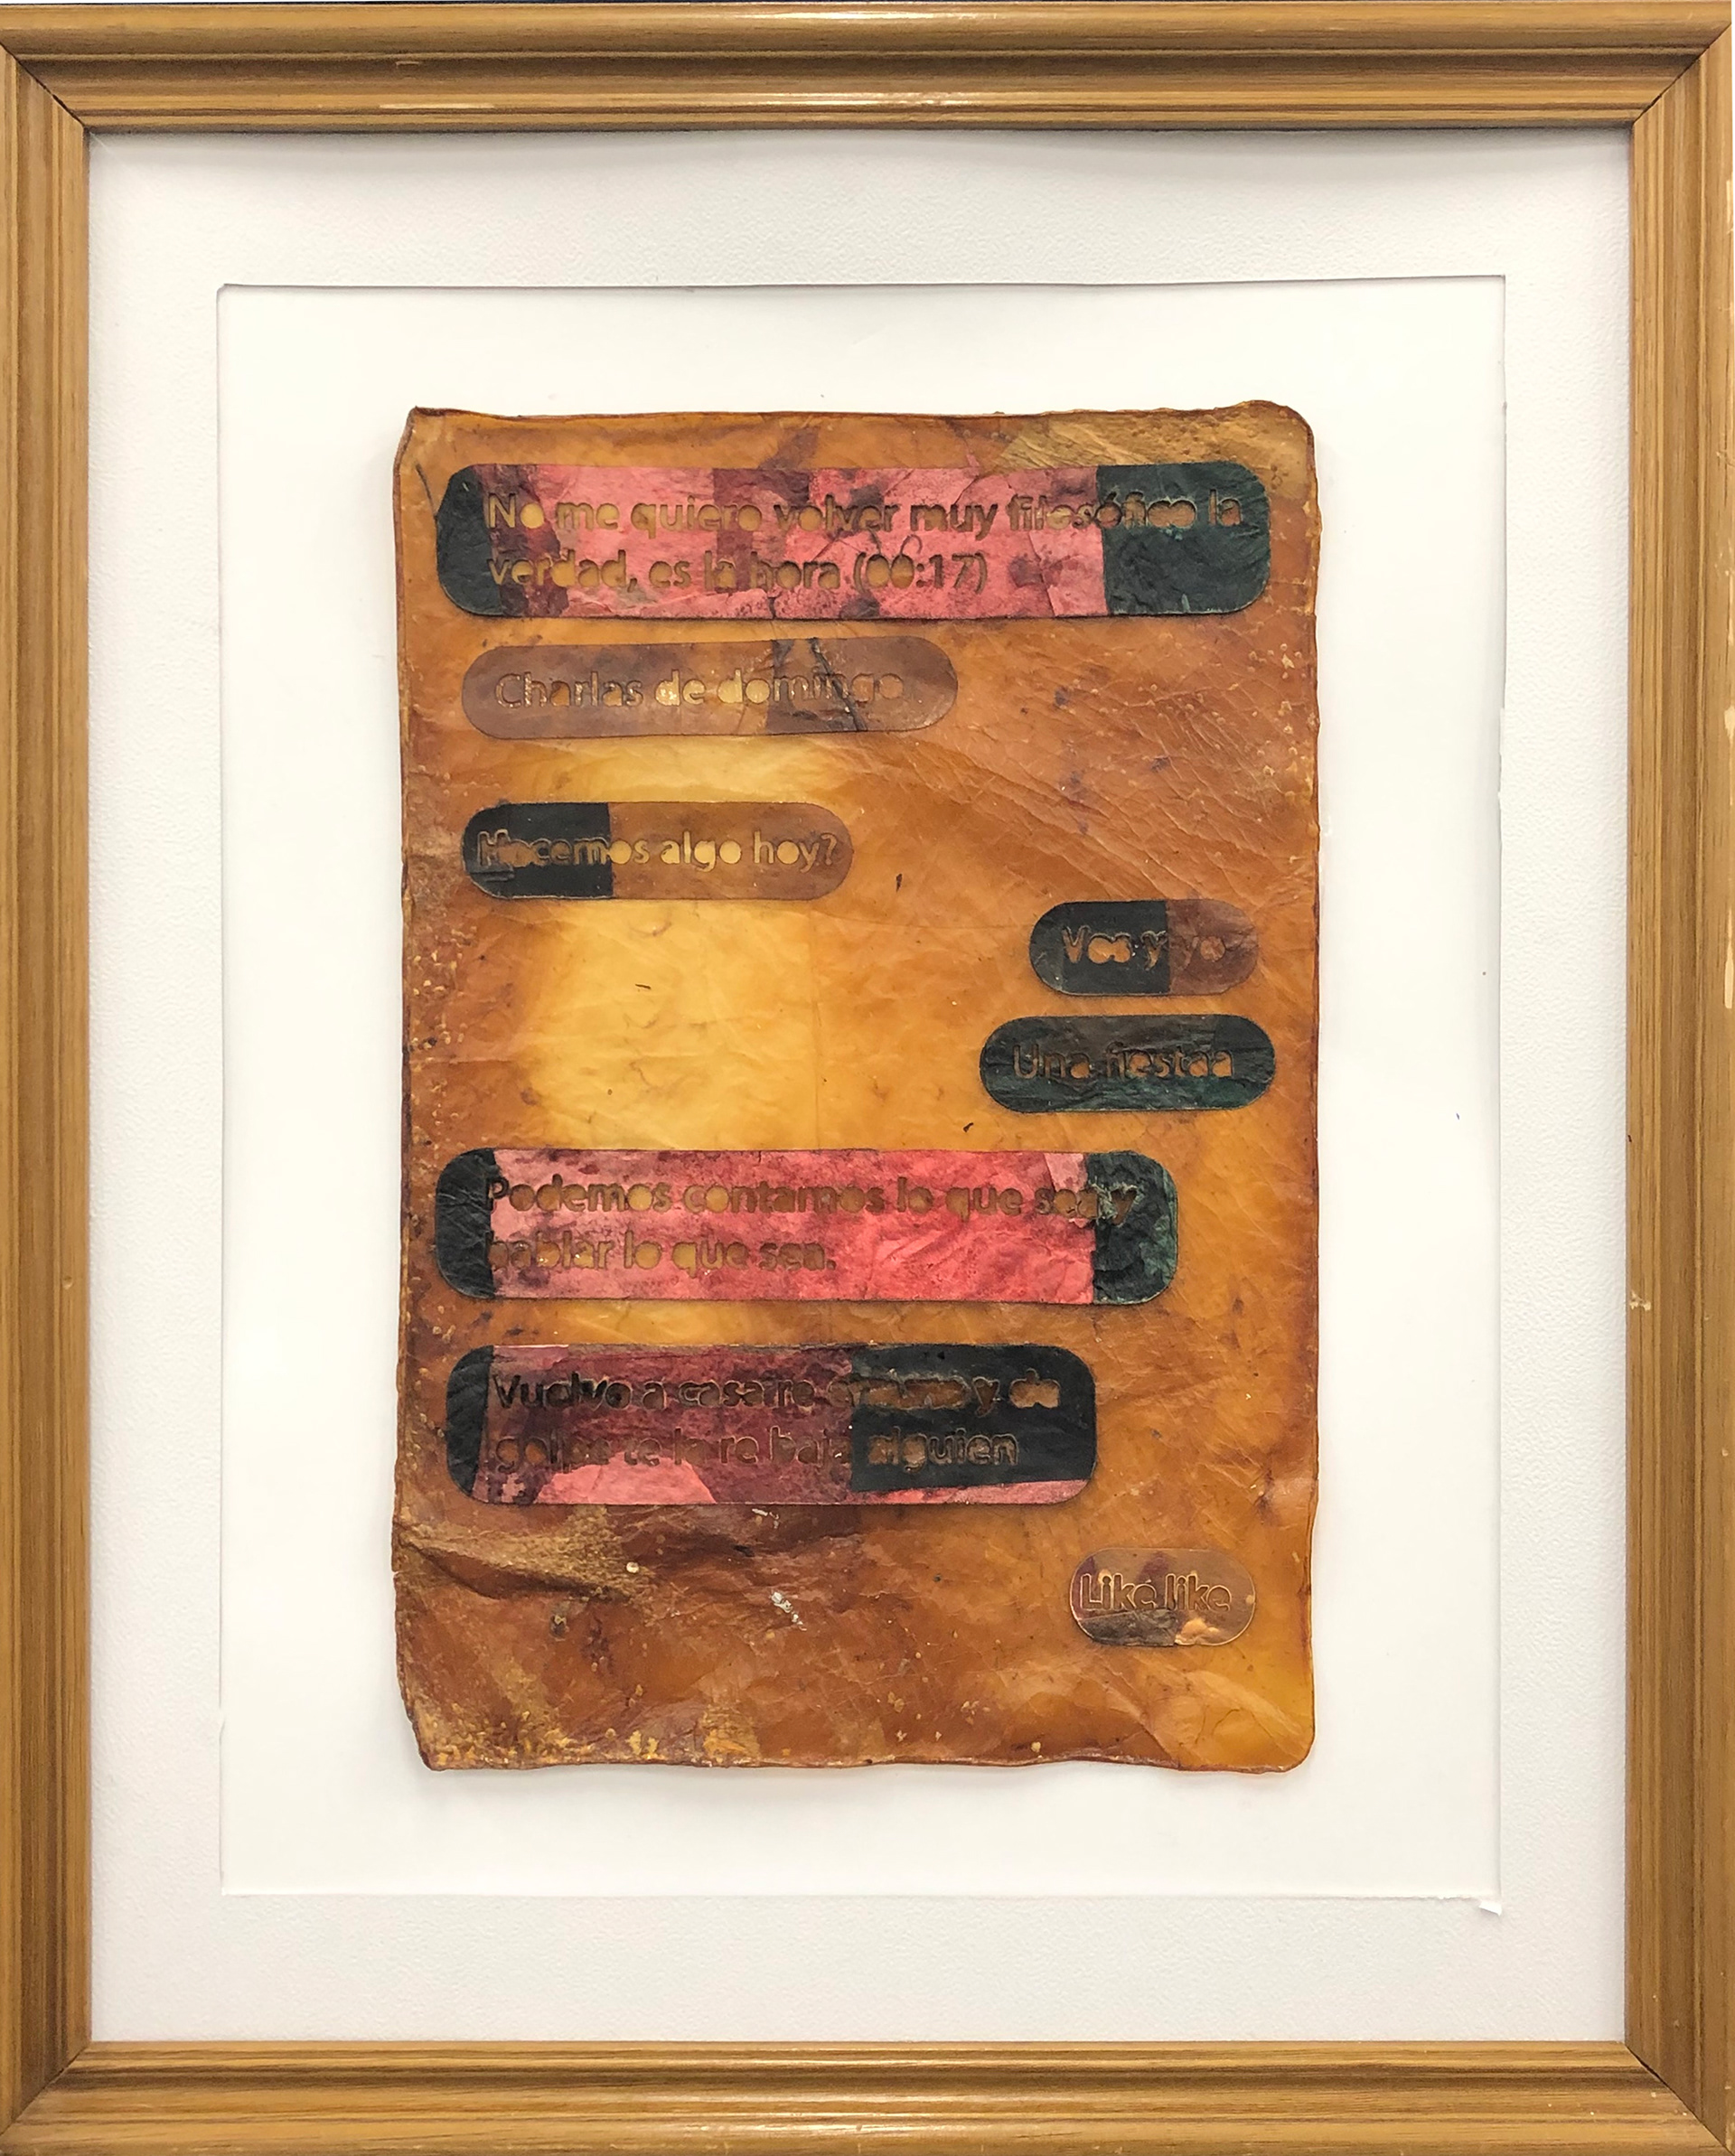 No me quiero volver muy filosófico la
verdad, es la hora (00:17)
Charlas de domingo
Hacemos algo hoy?
Vos y yo
Una fiestaa
Podemos contarnos lo que sea y
hablar lo que sea.
Vuelvo a casa re y de
golpe te la re baja alguien
Like like